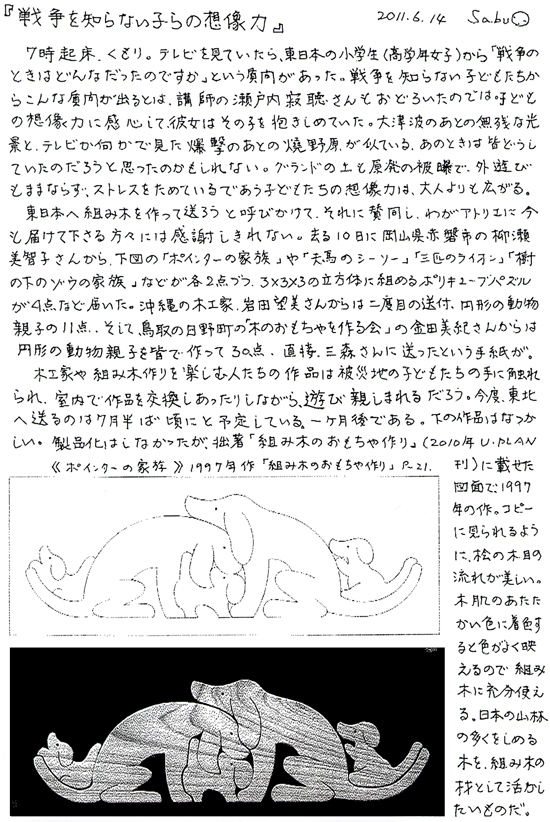 『戦争を知らない子らの想像力』 2011.6.14 Sabu
7時起床。くもり。テレビを見ていたら、東日本の小学生(高学年女子)から「戦争の
ときはどんなだったのですか」という質問があった。戦争を知らない子どもたちか
らこんな質問が出るとは、講師の瀬戸内寂聴さんもおどろいたのでは。子ども
の想像力に感心して、彼女はその子を抱きしめていた。大津波のあとの無残な光
景と、テレビか何かで見た爆撃のあとの焼野原が似ている、あのときは皆どうし
ていたのだろうと思ったのかもしれない。グランドの土も原発の被曝で、外遊び
もままならず、ストレスをためているであろう子どもたちの想像力は、大人よりも広がる。
東日本へ組み木を作って送ろうと呼びかけて、それに賛同し、わがアトリエに今
も届けて下さる方々には感謝しきれない。去る10日に岡山県赤磐市の柳瀬
美智子さんから、下図の「ポインターの家族」や「天馬のシーソー」「三匹のライオン」「樹
の下のゾウの家族」などが各2点づつ、3×3×3の立方体に組めるポリキューブパズル
が4点など届いた。沖縄の木工家、岩田望美さんからは二度目の送付、円形の動物
親子の11点、そして鳥取の日野町の「木のおもちゃを作る会」の金田美紀さんからは
円形の動物親子を皆で作って30点、直接、三森さんに送ったという手紙が。
木工家や組み木作りを楽しむ人たちの作品は被災地の子どもたちの手に触れ
られ、室内で作品を交換しあったりしながら、遊び親しまれるだろう。今度、東北
へ送るのは7月半ば頃にと予定している。一ヶ月後である。下の作品はなつか
しい。製品化はしなかったが、拙著「組み木のおもちゃ作り」(2010年U-PLAN
《ポインターの家族》1997年作「組み木のおもちゃ作り」P-21.
刊)に載せた
図面で、1997
年の作。コピー
に見られるよう
に、桧の木目の
流れが美しい。
木肌のあたた
かい色に着色す
ると色がよく映
えるので組み
木に充分使え
る。日本の山林
の多くをしめる
木を、組み木の
材として活かし
たいものだ。